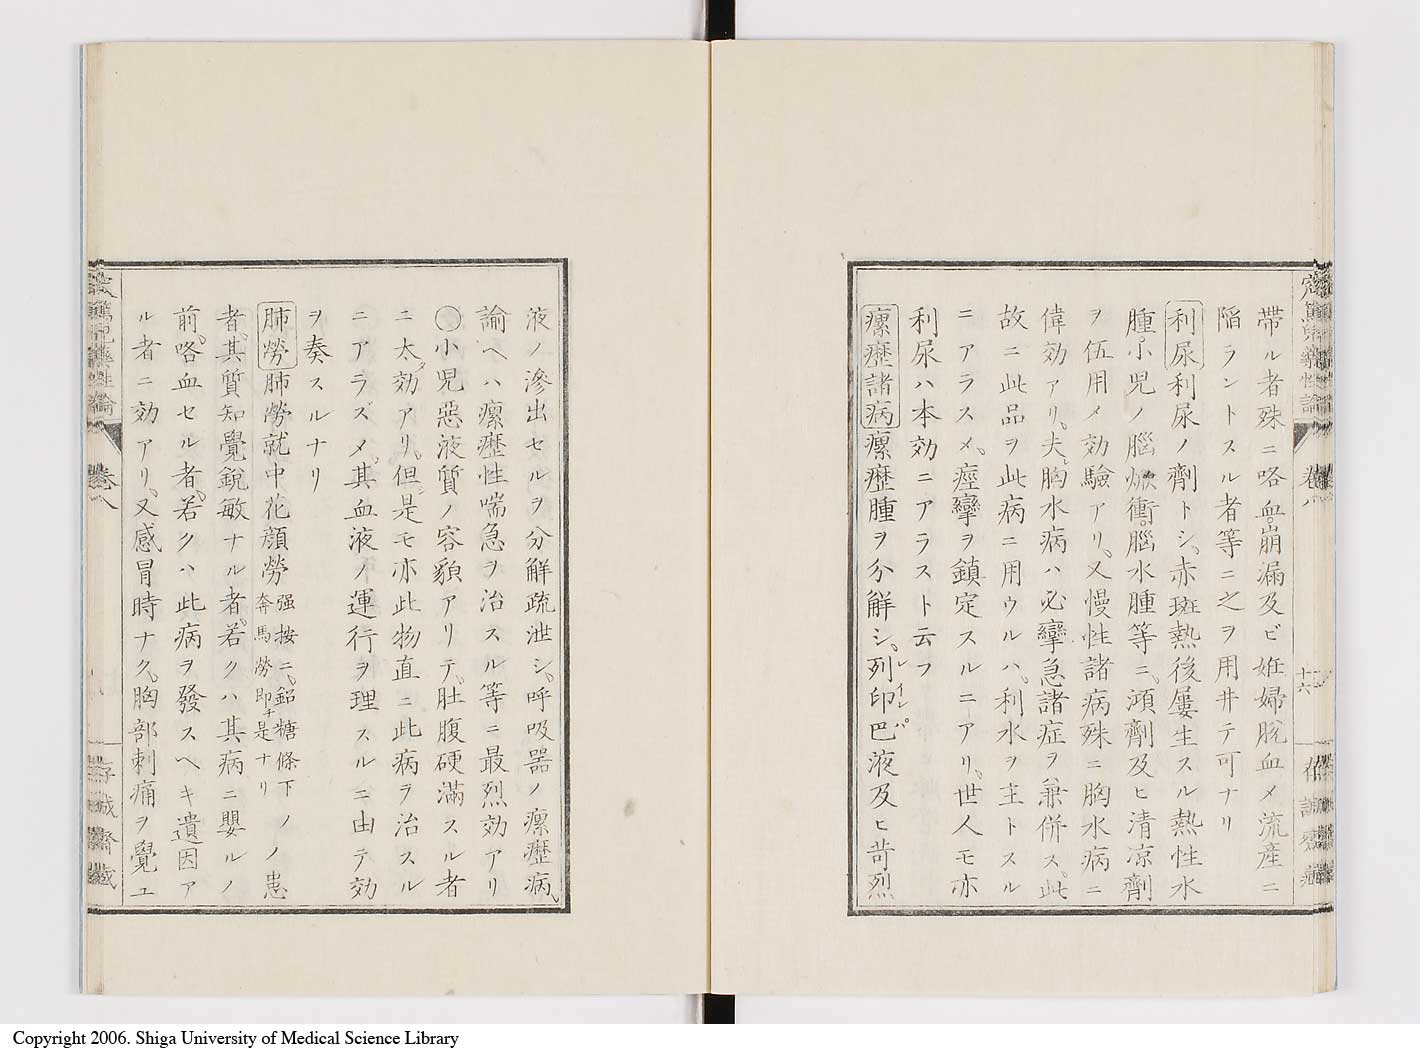 帶ル者殊ニ咯血。崩漏及ビ姙婦脫血メ流產ニ
陷ラントスル者等ニ之ヲ用井テ可ナリ
利尿利尿ノ劑トシ、赤斑熱後屢生スル熱性水
腫。小兒ノ腦焮衝。腦水腫等ニ、澒劑及ヒ清凉劑
ヲ伍用メ効驗アリ、又慢性諸病殊ニ胸水病ニ
偉効アリ、夫レ胸水病ハ必攣急諸症ヲ兼併ス、此
故ニ此品ヲ此病ニ用ウルハ、利水ヲ主トスル
ニアラスメ、痙攣ヲ鎮定スルニアリ、世人モ亦
利尿ハ本効ニアラスト云フ
瘰癧諸病瘰癧腫ヲ分解シ、列印巴液及ヒ苛烈
レインパ
卷八
十六
液ノ滲出セルヲ分解疏泄シ、呼吸器ノ瘰癧病、
諭ヘハ瘰癧性喘急ヲ治スル等ニ最烈効アリ
〇小兒惡液質ノ容貌アリテ、肚腹硬滿スル者
ニ太タ効アリ、但シ是モ亦此物直ニ此病ヲ治スル
ニアラズメ、其血液ノ運行ヲ理スルニ由テ効
ヲ奏スルナリ
肺勞肺勞就中花顏勞强按ニ、鉛糖條下ノ奔馬勞即チ是ナリノ患
者、其質知覺銳敏ナル者、若クハ其病ニ嬰ルノ
前、咯血セル者、若クハ此病ヲ發スヘキ遺因ア
ル者ニ効アリ、又感冒時ナク、胸部刺痛ヲ覺ユ
卷八
Copyright 2006. Shiga University of Medical Science Library